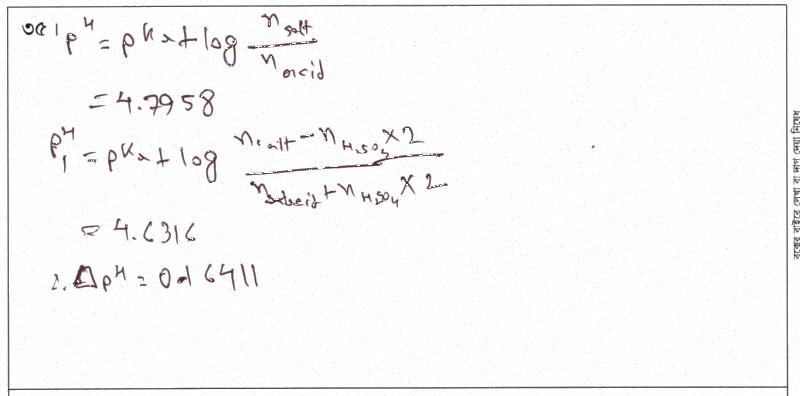 ৩৫। pH = pKa + log n salt / n acid
= 4.7958
pH₁ = pKa + log (n salt - n H₂SO₄ × 2) / (n acid + n H₂SO₄ × 2)
= 4.6316
∴ ΔpH = 0.16411